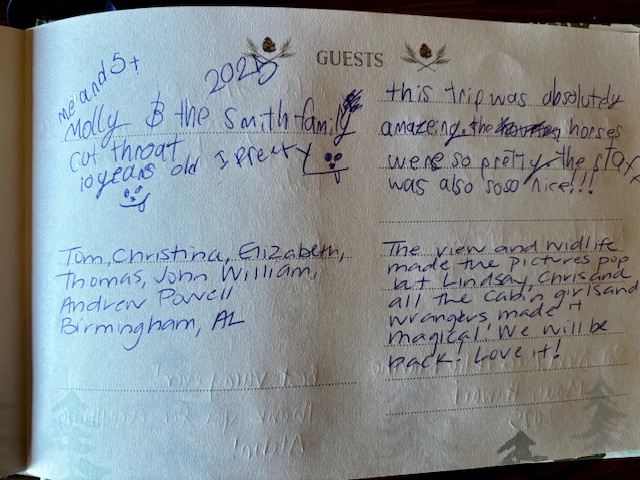 GUESTS
me and 5+
2025
Molly & the Smith family
cut throat
10 years old I pretty
this trip was absolutely
amazeing. the horses
were so pretty. the stax
was also soso nice!!!
Tom, Christina, Elizabeth,
Thomas, John William,
Andrew Powell
Birmingham, AL
The view and wildlife
made the pictures pop
but Lindsay, Chris and
all the cabin girls and
wranglers made it
magical! We will be
back! Love it!